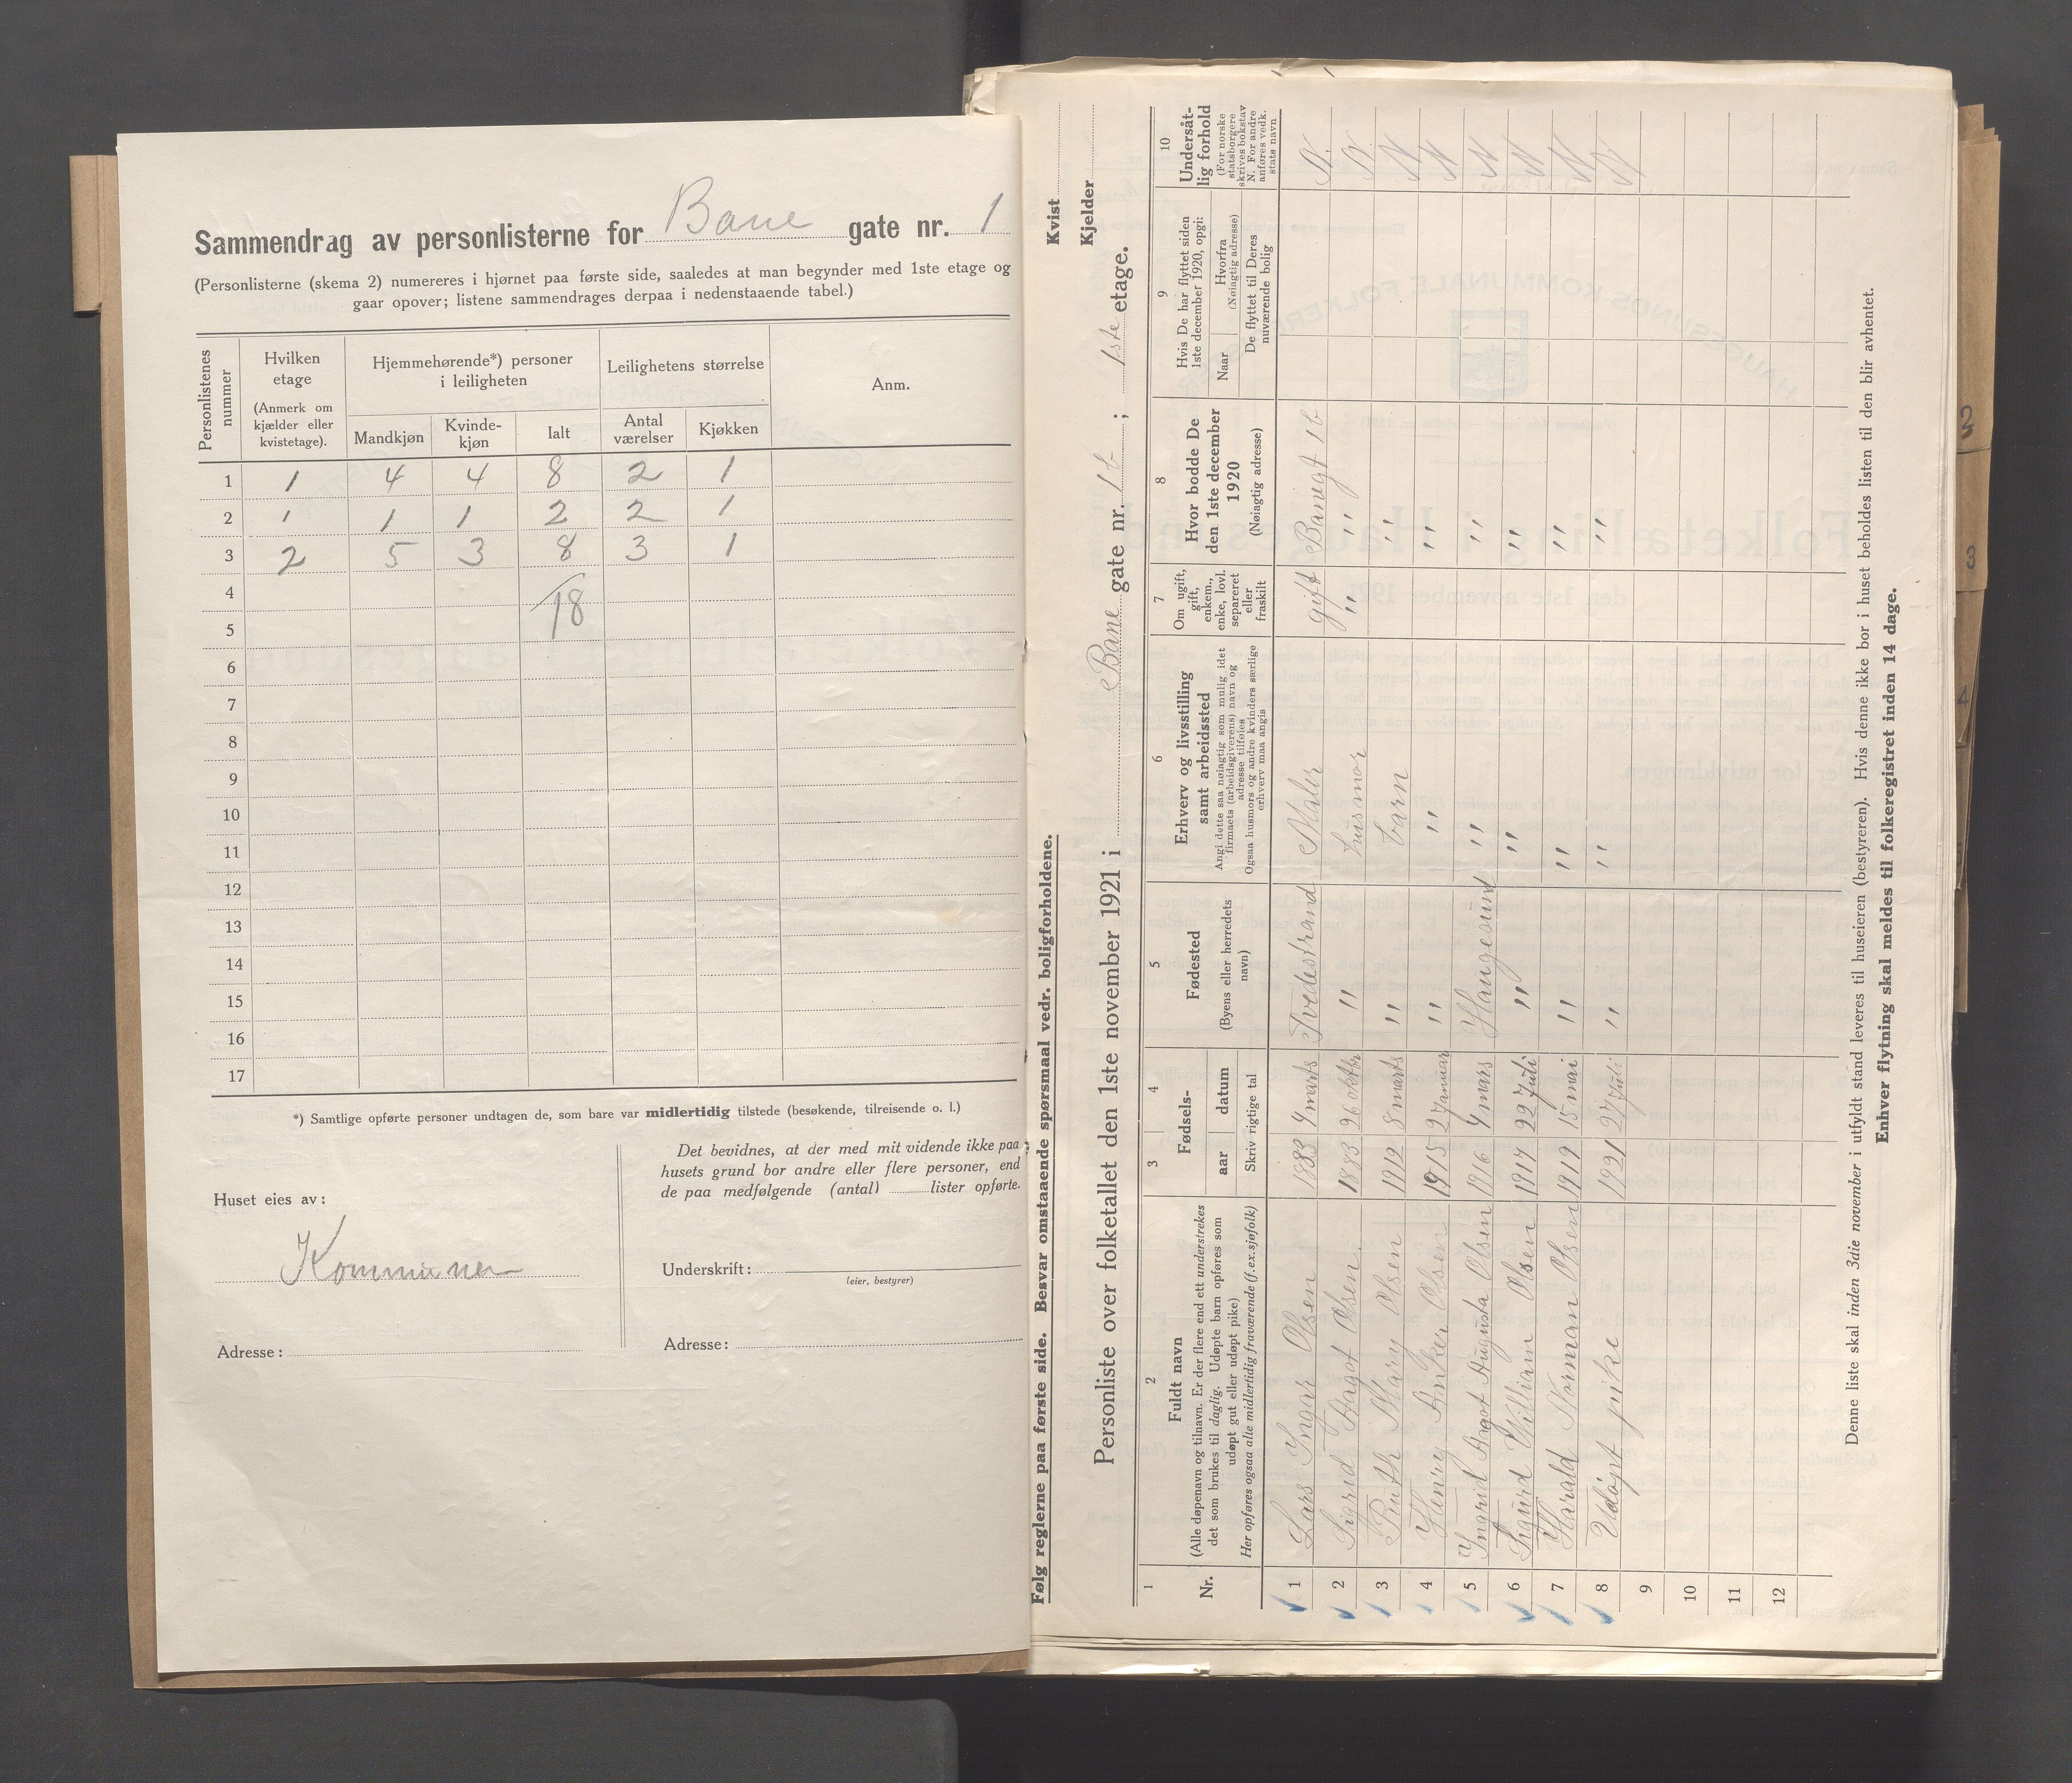 Sammendrag av personlisterne for Bane gate nr. 1
(Personlisterne (skema 2) numereres i hjørnet paa første side, saaledes at man begynder med 1ste etage og
gaar opover; listene sammendrages derpaa i nedenstaaende tabel.)
Personlistenes nummer
Hvilken etage (Anmerk om kjælder eller kvistetage).
Hjemmehørende*) personer i leiligheten
Mandkjøn Kvinde-kjøn Ialt
Leilighetens størrelse
Antal værelser Kjøkken
Anm.
1 1 4 4 8 2 1
2 1 1 1 2 2 1
3 2 5 3 8 3 1
4
18
5
6
7
8
9
10
11
12
13
14
15
16
17
*) Samtlige opførte personer undtagen de, som bare var midlertidig tilstede (besøkende, tilreisende o. l.)
Huset eies av:
Kommunen
Adresse:
Det bevidnes, at der med mit vidende ikke paa
husets grund bor andre eller flere personer, end
de paa medfølgende (antal) lister opførte.
Underskrift:
(eier, bestyrer)
Adresse:
Følg reglerne paa første side. Besvar omstaaende spørsmaal vedr. boligforholdene.
Kvist
Kjelder
Personliste over folketallet den 1ste november 1921 i Bane gate nr. 1b ; 1ste etage.
1 2 3 4 5 6 7 8 9 10
Nr.
Fuldt navn
(Alle døpenavn og tilnavn. Er der flere end ett understrekes
det som brukes til daglig. Udøpte barn opføres som
udøpt gut eller udøpt pike)
Her opføres ogsaa alle midlertidig fraværende (f.ex.sjøfolk)
Fødsels-
aar datum
Skriv rigtige tal
Fødested
(Byens eller herredets navn)
Erhverv og livsstilling
samt arbeidssted
Angi dette saa nøiagtig som mulig idet
firmaets (arbeidsgiverens) navn og
adresse tilføies
Ogsaa husmors og andre kvinders særlige
erhverv maa angis
Om ugift, gift, enkem., enke, lovl. separeret eller fraskilt
Hvor bodde De
den 1ste december
1920
(Nøiagtig adresse)
Hvis De har flyttet siden
1ste december 1920, opgi:
Naar
Hvorfra
(Nøiagtig adresse)
De flyttet til Deres
nuværende bolig
Undersåt-
lig forhold
(For norske
statsborgere
skrives bokstav
N. For andre
anføres vedk.
stats navn
1 Lars Ingar Olsen 1883 4 marts Tvedestrand Maler gift Banegt 1b N.
2 Sigrid Dagot Olsen. 1883 26 oktbr " husmor " " N.
3 Ruth Mary Olsen 1912 8 marts " barn " N
4 Henry Anker Olsen 1915 27 januar " " " N
5 Ingrid Dagot Augusta Olsen 1916 4 mars Haugesund " " N
6 Sigurd William Olsen 1917 22 juli " " " N
7 Harald Norman Olsen 1919 15 mai " " " N
8 Udöpt pike 1921 27 juli " " " N
9
10
11
12
Denne liste skal inden 3die november i utfyldt stand leveres til huseieren (bestyreren). Hvis denne ikke bor i huset beholdes listen til den blir avhentet.
Enhver flytning skal meldes til folkeregistret inden 14 dage.
2
3
4